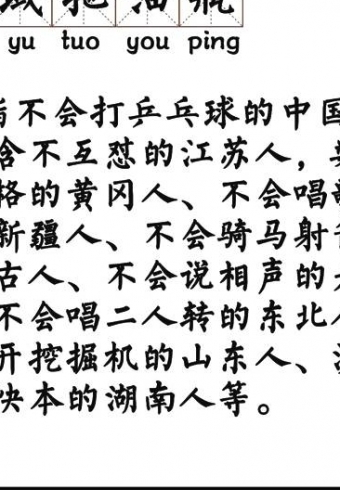 域拖油瓶
yu tuo you ping
指不会打乒乓球的中国
含不互怼的江苏人，
格的黄冈人、不会唱歌
新疆人、不会骑马射
古人、不会说相声的天
不会唱二人转的东北人
开挖掘机的山东人、没
快本的湖南人等。